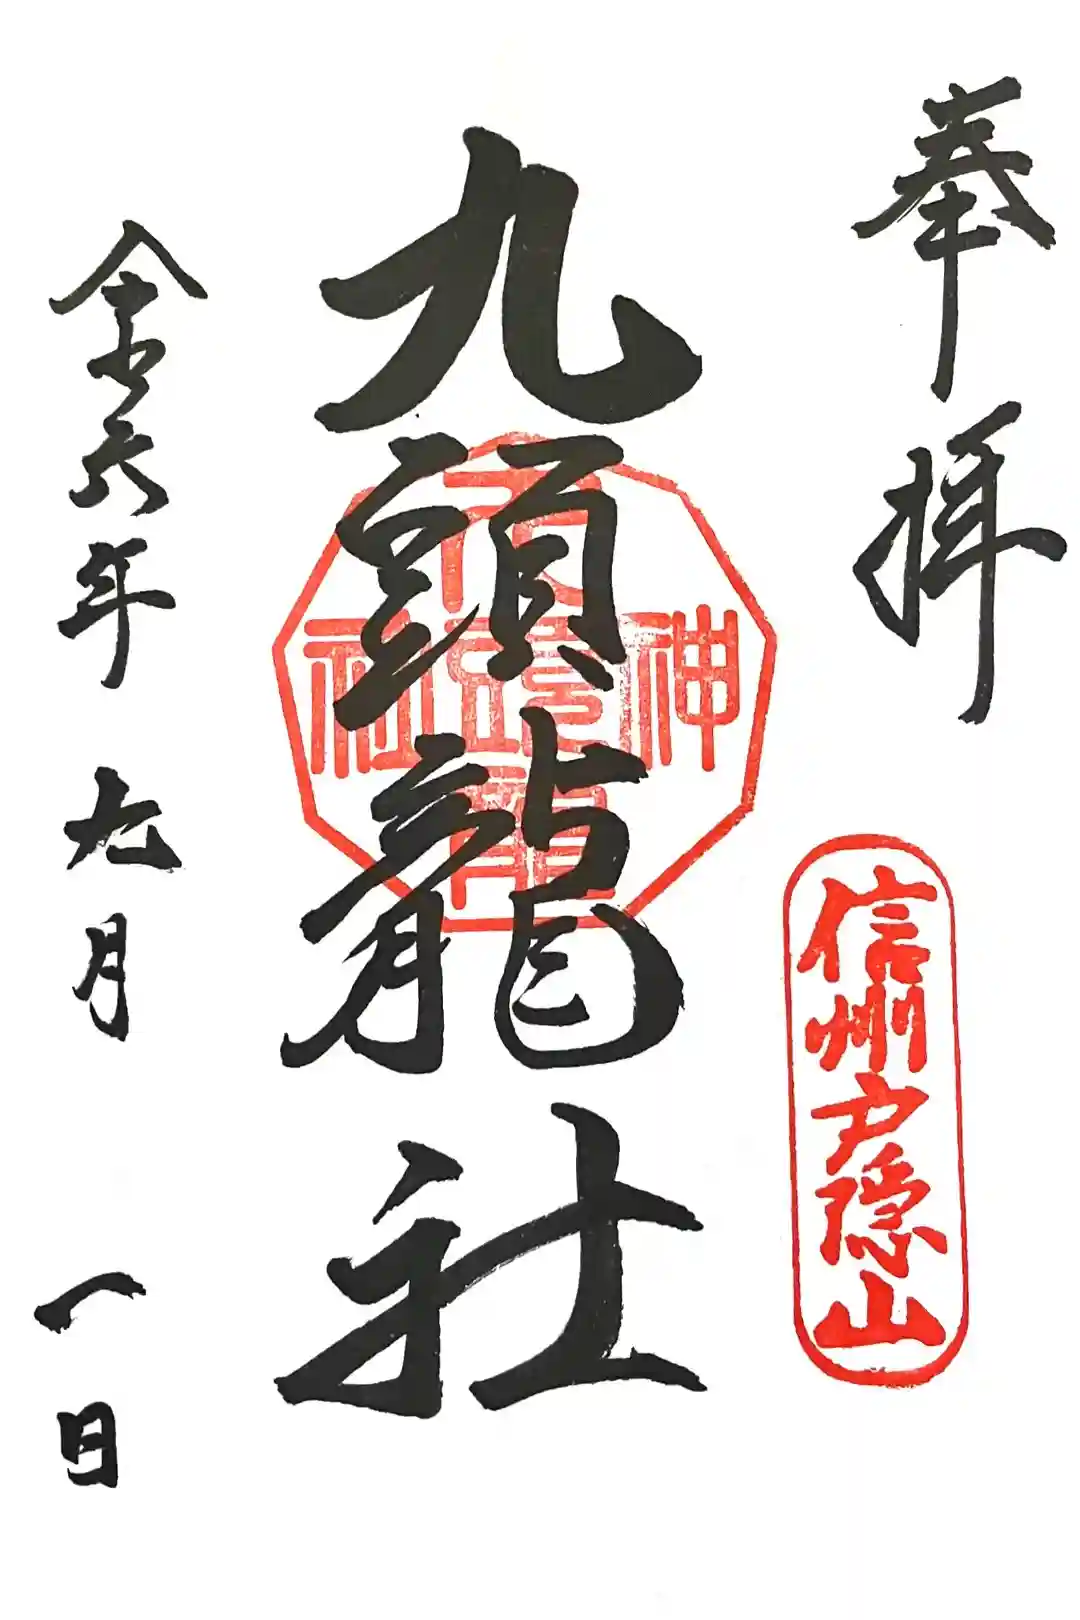 奉拝
信州戸隠山
九頭龍社
九頭龍神社
令和六年 九月 一日